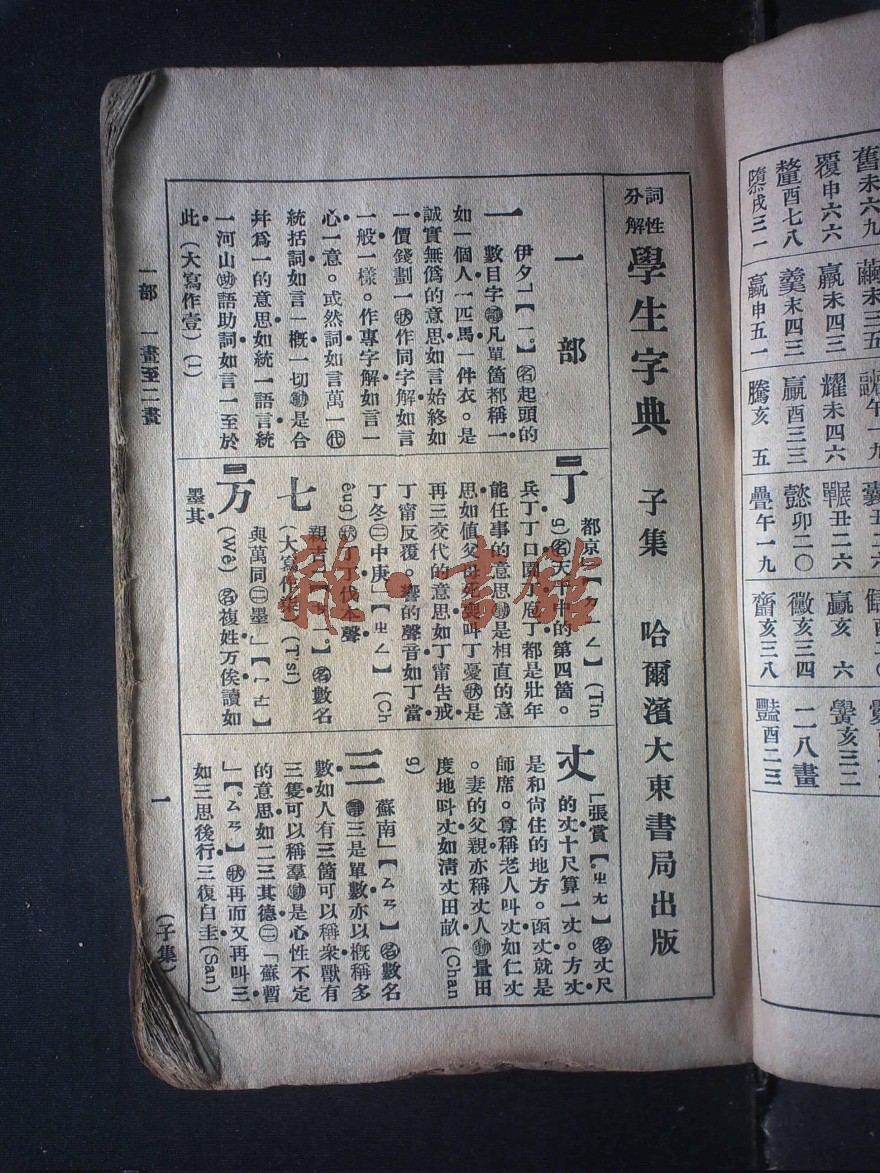 詞性分解 學生字典 子集 哈爾濱大東書局出版
一部
一 伊夕」【一。】㊔起頭的
數目字凡單箇都稱一
如一個人一匹馬一件衣。是
誠實無僞的意思如言始終如
一價錢劃一作同字解如言
一般一樣。作專字解如言一
心一意。或然詞如言萬一
統括詞如言一概一切是合
幷爲一的意思如統一語言統
一河山語助詞如言一至於
此(大寫作壹)(I)
丁 都京」
兵丁丁口園丁庖丁都是壯年
能任事的意思是相直的意
思如值父母死喪叫丁憂是
再三交代的意思如丁甯告戒
丁甯反覆。響的聲音如丁當
丁冬㊁中庚」【ㄓㄥ】(Ch
七
(大寫作柒)(Tsi)
万 與萬同㊁墨」
(Wé)名複姓万俟讀如
墨其
丈 「張賞【ㄓㄤ】名丈尺
的丈十尺算一丈。方丈
是和尙住的地方。函丈就是
師席。尊稱老人叫丈如仁丈
。妻的父親亦稱丈人量田
度地叫丈如清丈田畝(Chan
g)
三 蘇南」【ㄙㄢ】名數名
三是單數亦以概稱多
數如人有三箇可以稱衆獸有
三隻可以稱羣是心性不定
的意思如二三其德㊁「蘇暫
」【ㄙㄢ】再而又再叫三
如三思後行三復白圭(San)
一部 一畫至二畫
一
(子集)
舊未六九
覆申六六
釐酉七八
隳戌三一
繭未三五
羸未四三
羹未四三
嬴申五一
耀未四六
贏酉三三
騰亥五
囊丑二六
囅丑二六
懿卯二〇
疊午一九
贏亥六
黴亥三四
齎亥三八
釁亥三二
二八畫
豔酉二三
雜·書館